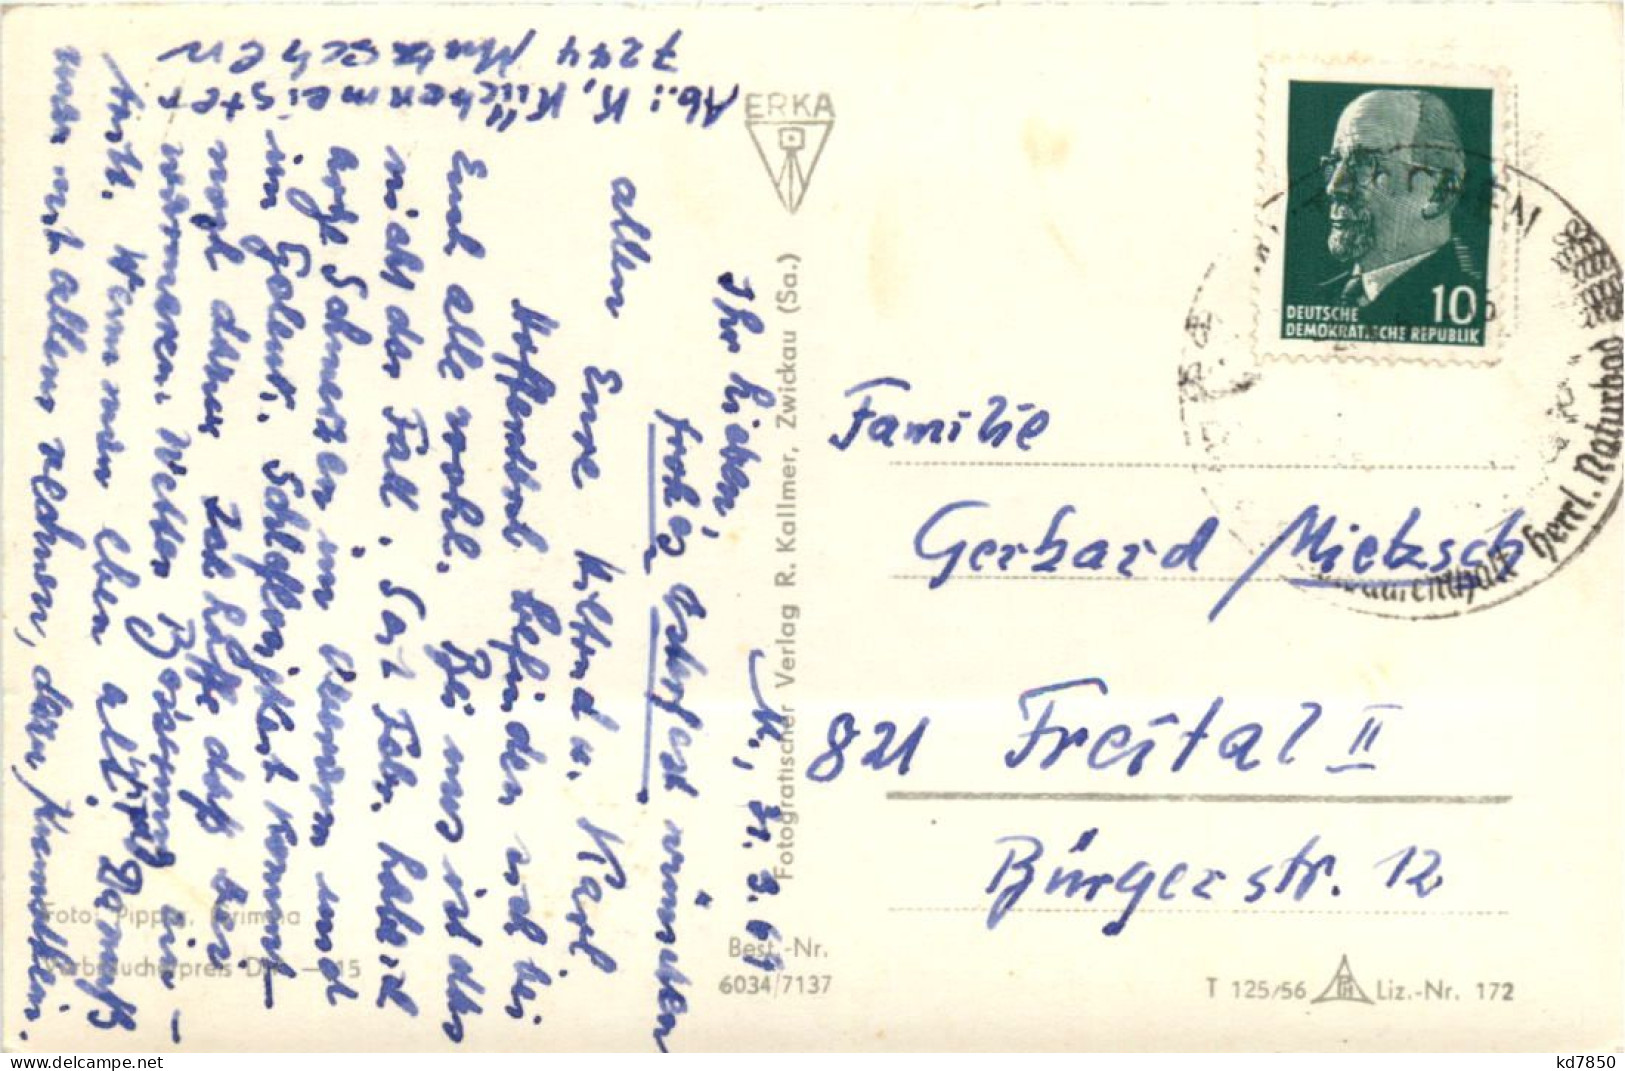 Abs.: K. Küchenmeister
7244 Mutzschen
ERKA
M., 21. 3. 67
Ihr Lieben,
frohes Osterfest wünschen
allen Eure Hilten u. Karl
Hoffentlich befinden sich bei
Euch alle wohl. Bei uns ist das
nicht der Fall. Seit Febr. habe ich
arge Schmerzen im und
im Gelenk. Schlaflosigkeit kommt
noch dazu. Ich hoffe daß bei
wärmeren Wetter Besserung ein-
tritt. Wenn man eben alt wird
muß mit allem rechnen, dazu
Fotografischer Verlag R. Kallmer, Zwickau (Sa.)
Foto: Pipper, Grimma
Verbraucherpreis DM —.15
Best.-Nr.
6034/7137
DEUTSCHE
DEMOKRATISCHE REPUBLIK
10
Herrl. Naturbad
Familie
Gerhard Mietzsch
821 Freital II
Bürgerstr. 12
T 125/56 Liz.-Nr. 172
www.delcampe.net
kd7850